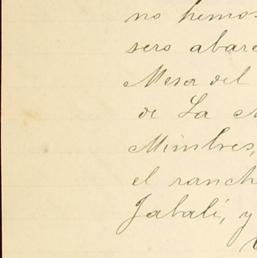 no hemos
sero abar
Mesa del
de La
Mimbres,
el ranch
Jabalí, y